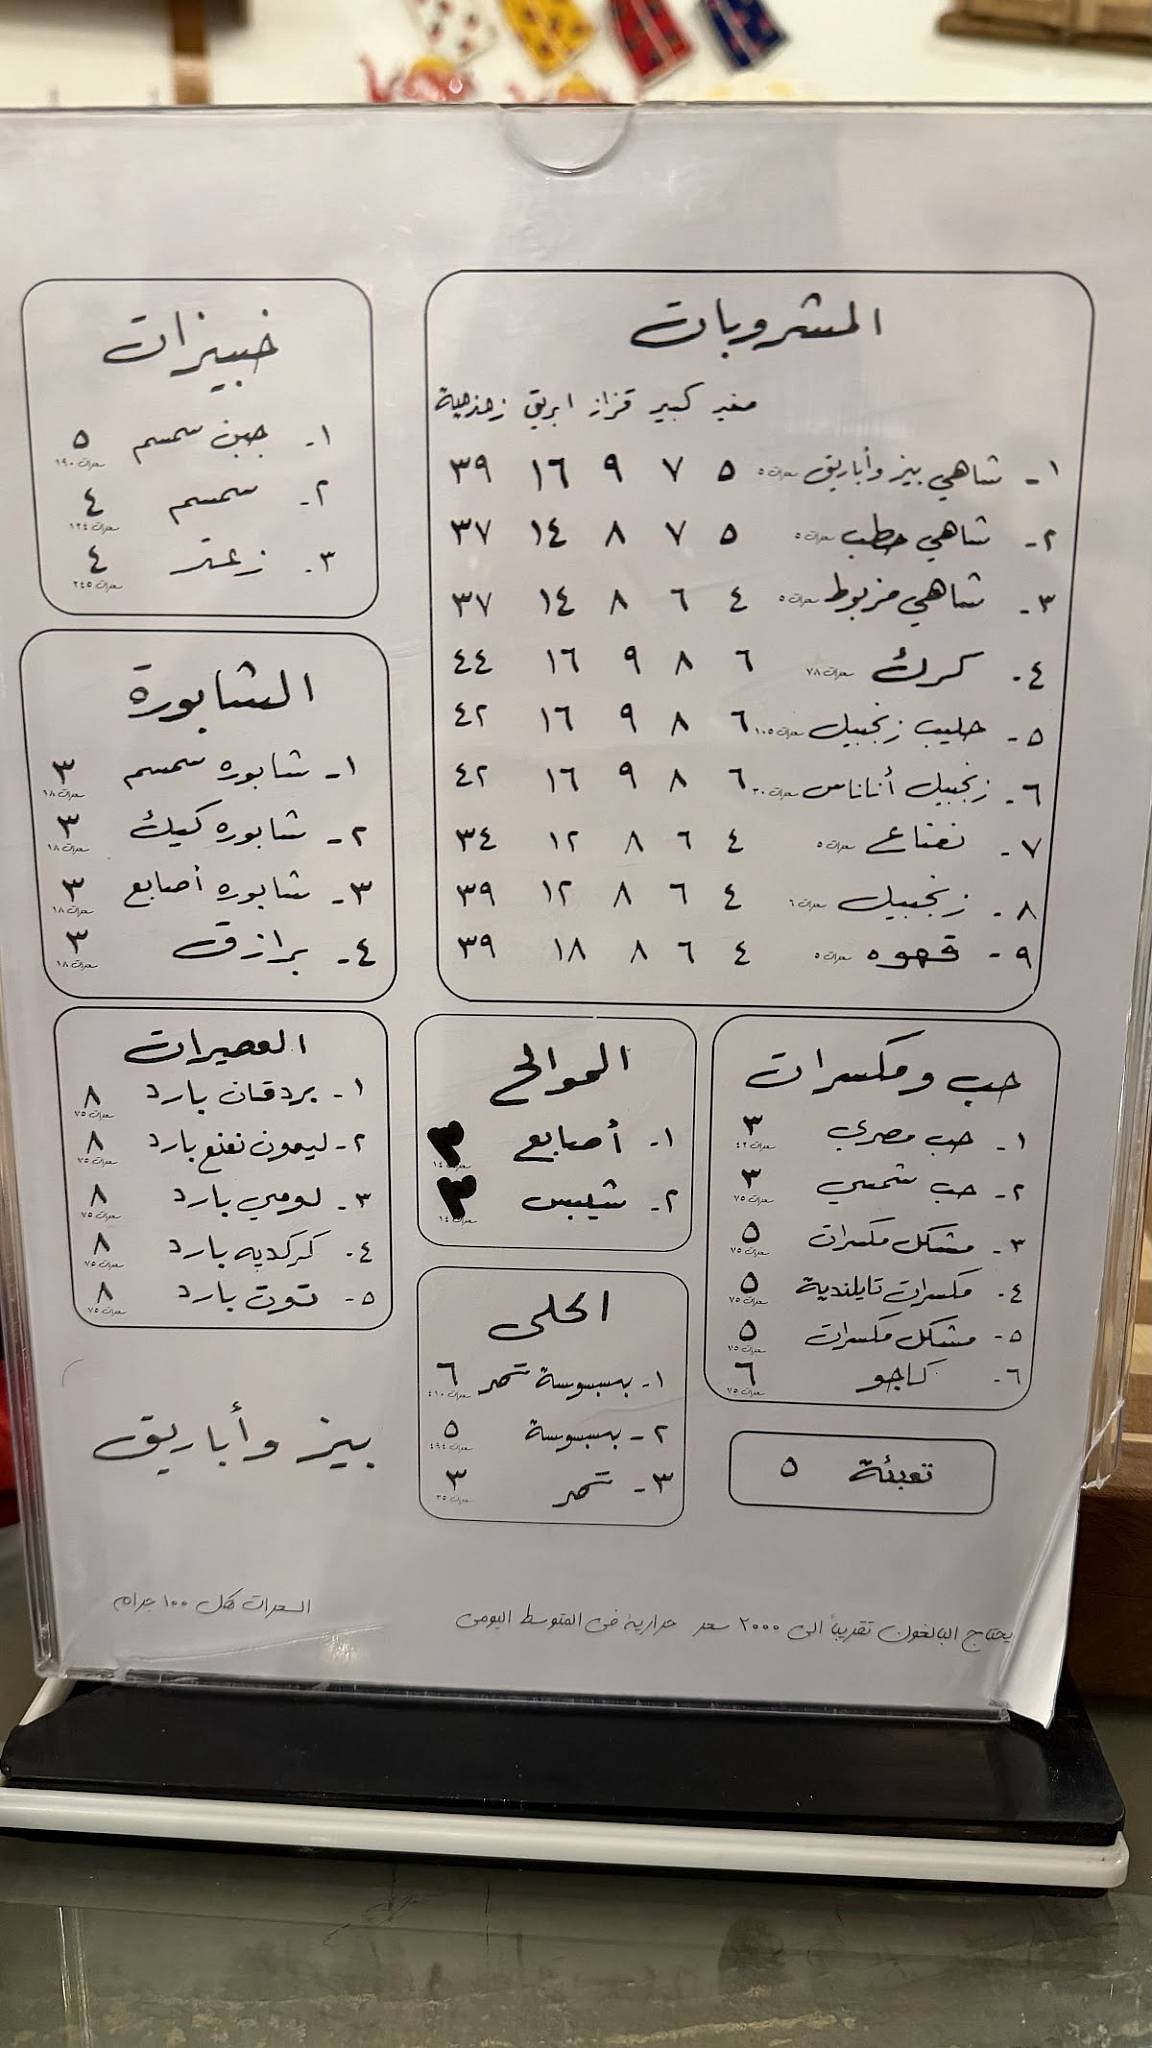 المشروبات
صغير كبير قزاز ابريق زمزمية
١- شاهي بيز وأباريق سعرات ٥ ٥ ٧ ٩ ١٦ ٣٩
٢- شاهي حطب سعرات ٥ ٥ ٧ ٨ ١٤ ٣٧
٣- شاهي مزبوط سعرات ٥ ٤ ٦ ٨ ١٤ ٣٧
٤- كرك سعرات ٧٨ ٦ ٨ ٩ ١٦ ٤٤
٥- حليب زنجبيل سعرات ١٠٥ ٦ ٨ ٩ ١٦ ٤٢
٦- زنجبيل أناناس سعرات ٢٠ ٦ ٨ ٩ ١٦ ٤٢
٧- نعناع سعرات ٥ ٤ ٦ ٨ ١٢ ٣٤
٨- زنجبيل سعرات ٦ ٤ ٦ ٨ ١٢ ٣٩
٩- قهوه سعرات ٥ ٤ ٦ ٨ ١٨ ٣٩
خبيزات
١- جبن سمسم ٥
سعرات ١٩٠
٢- سمسم ٤
سعرات ١٢٤
٣- زعتر ٤
سعرات ٢٤٥
الشابورة
١- شابوره سمسم ٣
سعرات ١٨
٢- شابوره كيك ٣
سعرات ١٨
٣- شابوره أصابع ٣
سعرات ١٨
٤- برازق ٣
سعرات ١٨
حب ومكسرات
١- حب مصري ٣
سعرات ٤٢
٢- حب شمسي ٣
سعرات ٧٥
٣- مشكل مكسرات ٥
سعرات ٧٥
٤- مكسرات تايلندية ٥
سعرات ٧٥
٥- مشكل مكسرات ٥
سعرات ٧٥
٦- كاجو ٦
سعرات ٧٥
الموالح
١- أصابع ٣
٢- شيبس ٣
سعرات ١٤
العصيرات
١- بردقان بارد ٨
سعرات ٧٥
٢- ليمون نعنع بارد ٨
سعرات ٧٥
٣- لومي بارد ٨
سعرات ٧٥
٤- كركديه بارد ٨
سعرات ٧٥
٥- توت بارد ٨
سعرات ٧٥
الحلى
١- بسبوسة تمر ٦
سعرات ٤١٠
٢- بسبوسة ٥
سعرات ٤٩٤
٣- تمر ٣
سعرات ٣٥
تعبئة ٥
بيز وأباريق
يحتاج البالغون تقريباً الى ٢٠٠٠ سعر حرارية في المتوسط اليومي
السعرات لكل ١٠٠ جرام